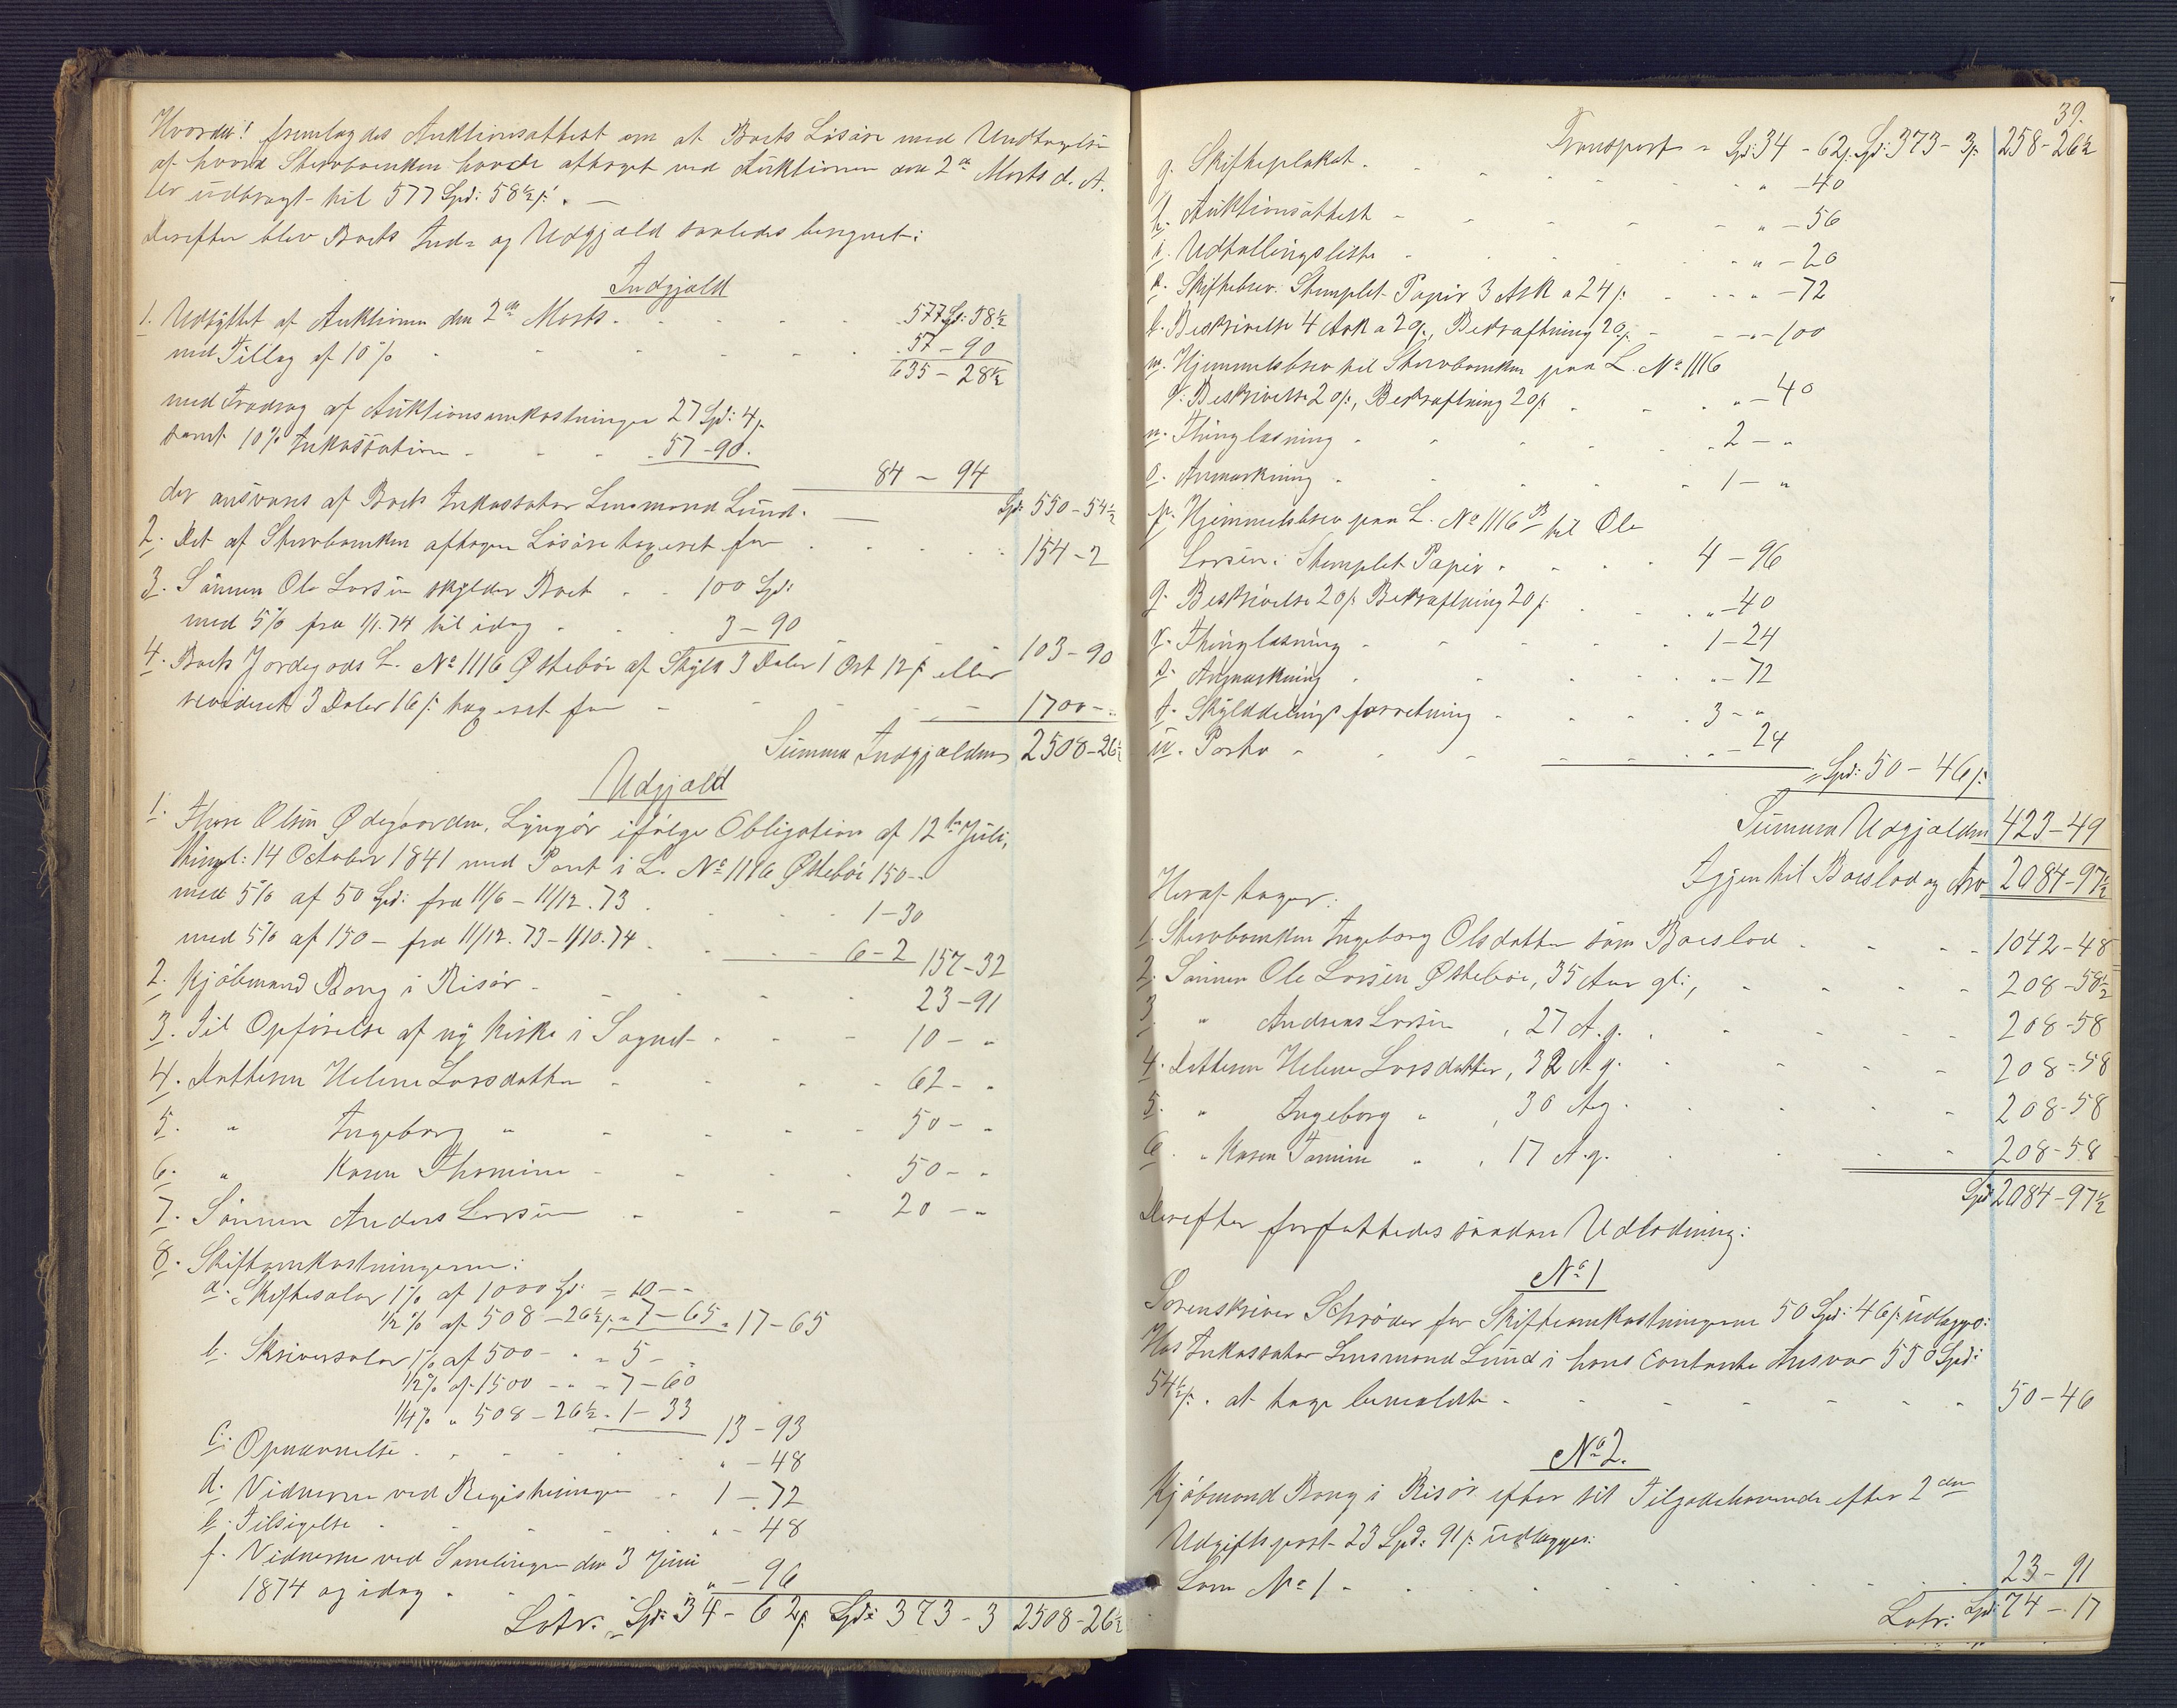 Hvorda! fremlagdes Auktionsattest om at Boets Løsøre med Undtagelse
af hvad Stervboenken havde aftaget ved Auktionen den 2den Marts d. A.
er udbragt til 577 Spd: 58½ s: . —
Derefter blev Boets Ind= og Udgjæld saaledes beregnet:
Indgjæld
1. Udbyttet af Auktionen den 2den Marts . . . 577 Spd: 58½
med Tillæg af 10% . . . 57 - 90
635 - 28½
med Fradrag af Auktionsomkostninger 27 Spd: 4 s.
samt 10% Inkassation - . 57 - 90.
84 - 94
der ansvares af Boets Inkassator Lensmand Lund. — Spd: 550 - 54½
2. Det af Stervboenken aftagne Løsøre tageret for . . . 154 - 2
3. Sønnen Ole Larsen skylder Boet . . 100 Spd:
med 5% fra 1/1.74 til idag . . 3 - 90
103 - 90
4. Boets Jordegods L. No 1116 Østebøe af Skyld 3 Daler 1 Ort 12 s: eller
revideret 3 Daler 16 s: taxeret for - - 1700 - "
Summa Indgjælden 2508 - 26½
Udgjæld
1. Thore Olsen Ødegaarden, Lyngør ifølge Obligation af 12te Juli,
thingl: 14 October 1841 med Pant i L. No 1116 Østebøe 150 - "
med 5% af 50 Spd: fra 11/6 - 11/12.73 . . . 1 - 30
med 5% af 150 - fra 11/12.73 - 1/10.74 . . 6 - 2 157 - 32
2. Kjøbmand Bang i Risør - . . . 23 - 91
3. Til Opførelse af ny Kirke i Sognet - . . 10 - "
4. Datteren Helene Larsdatter - . . 62 - "
5. " Ingeborg " - . . 50 - "
6. " Karen Thomine - . . 50 - "
7. Sønnen Anders Larsen - . . 20 - "
8. Skifteomkostningerne:
a. Skiftesalær 1% af 1000 Spd: = 10 - "
½% af 508 - 26½ s. = 7 - 65 = 17 - 65
b. Skriversalær 1% af 500 - " = 5 - "
½% af 1500 - " = 7 - 60
¼% " 508 - 26½ = 1 - 33 13 - 93
c. Opnævnelse . . . " - 48
d. Vidnerne ved Registreringen . . 1 - 72
e. Tilsigelse . . . " - 48
f. Vidnerne ved Samlingen den 3 Juni
1874 og idag . . " - 96
Latr. Spd: 34 - 62 s. Spd: 373 - 3 2508 - 26½
39.
Transport = Spd: 34 - 62 s. Spd: 373 - 3 s: 258 - 26½
g. Skifteplakat . . . " - 40
h. Auktionsattest - . . " - 56
i. Udtællingsliste . . . " - 20
k. Skiftebrev. Stemplet Papir 3 Ark a 24 s: . . " - 72
l. Beskrivelse 4 Ark a 20 s., Bekræftning 20 s. - - " - 100
m. Hjemmelsbrev til Stervboenken paa L. No 1116
Beskrivelse 20 s:, Bekræftning 20 s: . . " - 40
n. Thinglæsning . . . 2 - "
o. Anmærkning . . . 1 - "
p. Hjemmelsbrev paa L. No 1116 B til Ole
Larsen: Stemplet Papir . . . 4 - 96
q. Beskrivelse 20 s: Bekræftning 20 s. . . " - 40
r. Thinglæsning . . . 1 - 24
s. Anmærkning . . . " - 72
t. Skylddelingsforretning . . . 3 - "
u. Porto - . . . " - 24
Spd: 50 - 46 s:
Summa Udgjælden 423 - 49
Igjen til Boeslod og Arv 2084 - 97½
Heraf tager:
1. Stervboenken Ingeborg Olsdatter som Boeslod . . . 1042 - 48
2. Sønnen Ole Larsen Østebøe, 35 Aar gl:, . . . 208 - 58½
3. " Andreas Larsen , 27 A. g. . . . 208 - 58
4. Datteren Helene Larsdatter, 32 A. g. . . . 208 - 58
5. " Ingeborg " , 30 A. g. . . . 208 - 58
6. " Karen Tomine " , 17 A. g. . . . 208 - 58
Spd: 2084 - 97½
Derefter forfattedes saadan Udlodning:
No 1
Sorenskriver Schrøder for Skifteomkostningerne 50 Spd: 46 s: udlægges:
Hos Inkassator Lensmand Lund i hans contante Ansvar 550 Spd:
54½ s. at tage bemeldte . . . 50 - 46
No 2.
Kjøbmand Bang i Risør efter sit Tilgodehavende efter 2den
Udgiftspost 23 Spd: 91 s: udlægges:
Som No 1 - . . . 23 - 91
Latr: Spd: 74 - 17